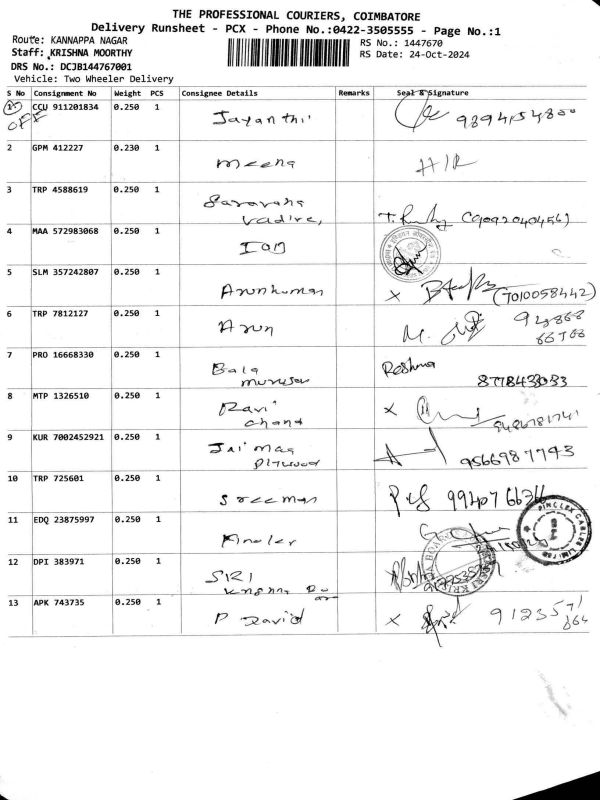 THE PROFESSIONAL COURIERS, COIMBATORE
Delivery Runsheet - PCX - Phone No.:0422-3505555 - Page No.:1
Route: KANNAPPA NAGAR
RS No.: 1447670
Staff: KRISHNA MOORTHY
RS Date: 24-Oct-2024
DRS No.: DCJB144767001
Vehicle: Two Wheeler Delivery
S No Consignment No Weight PCS Consignee Details Remarks Seal & Signature
CCU 911201834 0.250 1 Jayanthi
OFF
2 GPM 412227 0.230 1 Meena H/R
3 TRP 4588619 0.250 1 Saravana
4 MAA 572983068 0.250 1 IOB
5 SLM 357242807 0.250 1 Arunkumar X (7010058442)
6 TRP 7812127 0.250 1 Arun M.
7 PRO 16668330 0.250 1 Bala Reshma
murugan 8778433033
8 MTP 1326510 0.250 1 Ravi X
chand
9 KUR 7002452921 0.250 1 Jai Maa
Plywood 9566987743
10 TRP 725601 0.250 1 Sreeman 99407 66366
11 EDQ 23875997 0.250 1
12 DPI 383971 0.250 1 SRI
13 APK 743735 0.250 1 P David X 912357